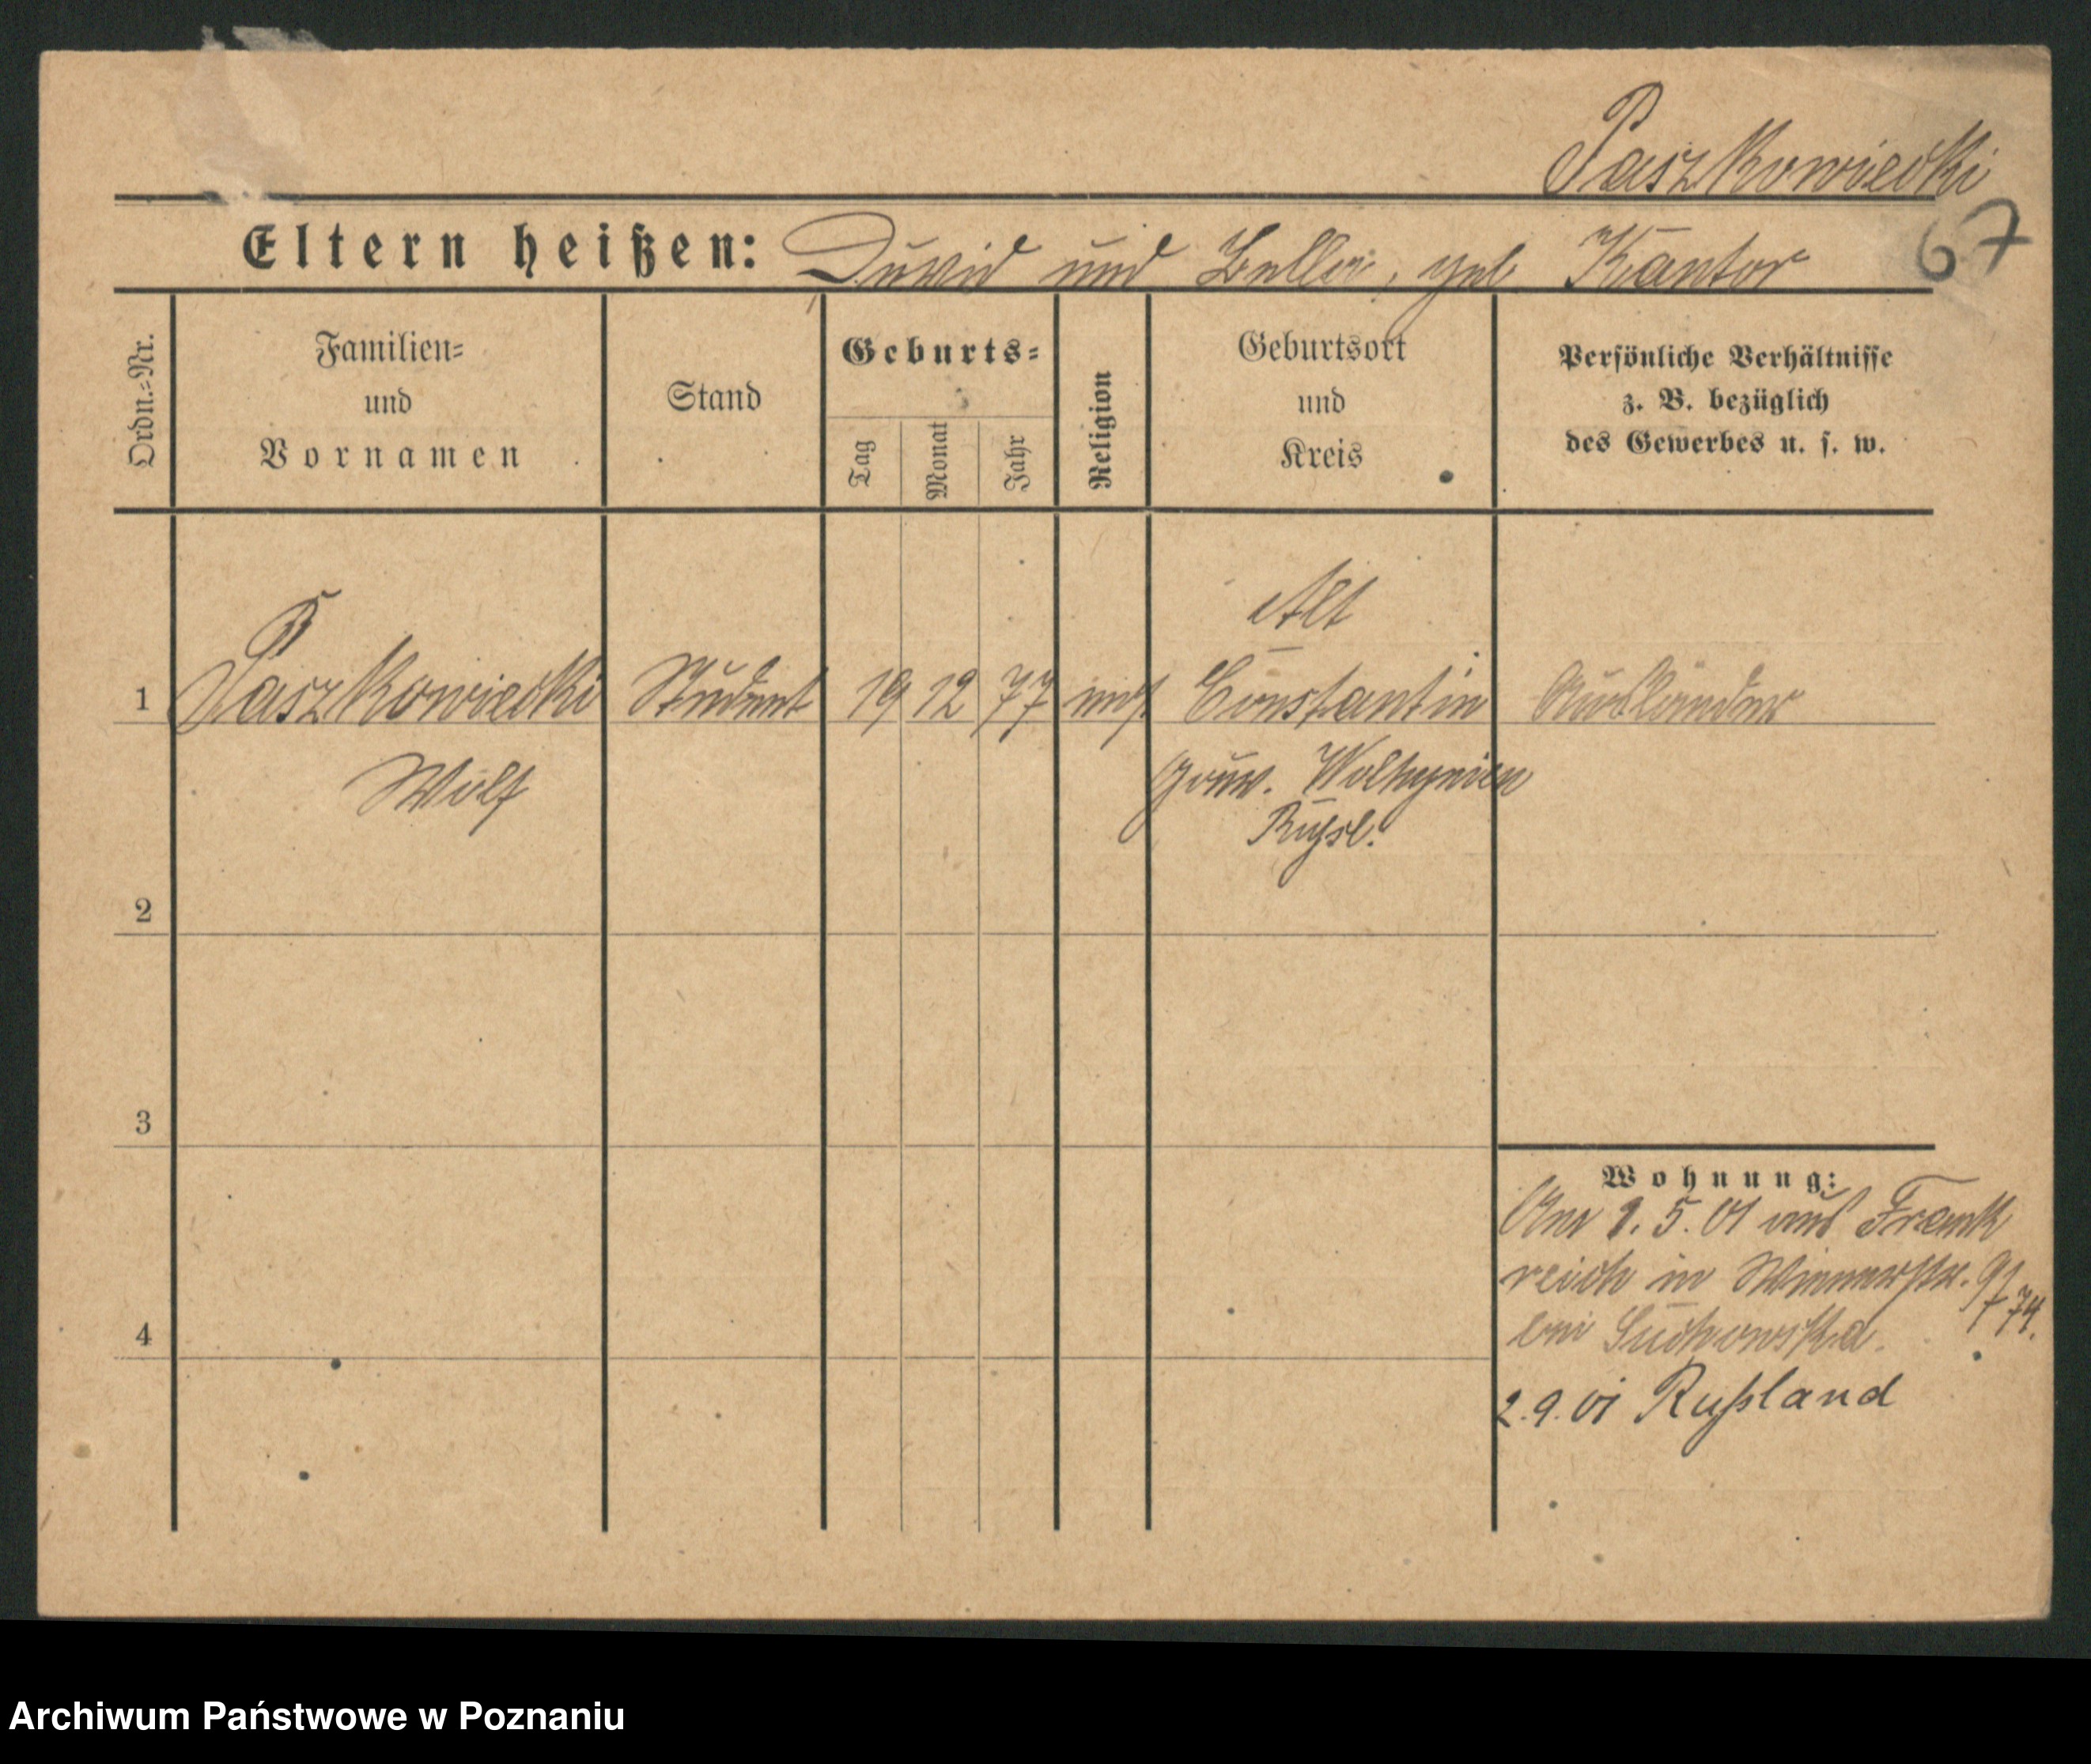 Paszkowiecki
67
Eltern heißen: David und Bella, geb. Kantor
Ordn.-Nr.
Familien=
und
Vornamen
Stand
Geburts=
Tag
Monat
Jahr
Religion
Geburtsort
und
Kreis
Persönliche Verhältnisse
z. B. bezüglich
des Gewerbes u. s. w.
Alt
1 Paszkowiecki Student 19 12 77 mos. Constantin Ausländer
Wolf
Gouv. Wolhynien
Rußl.
2
3
Wohnung:
Am 1. 5. 01 aus Frank
reich in Wienerstr. 9/
74.
bei Suchowska.
4
2. 9. 01 Rußland
Archiwum Państwowe w Poznaniu